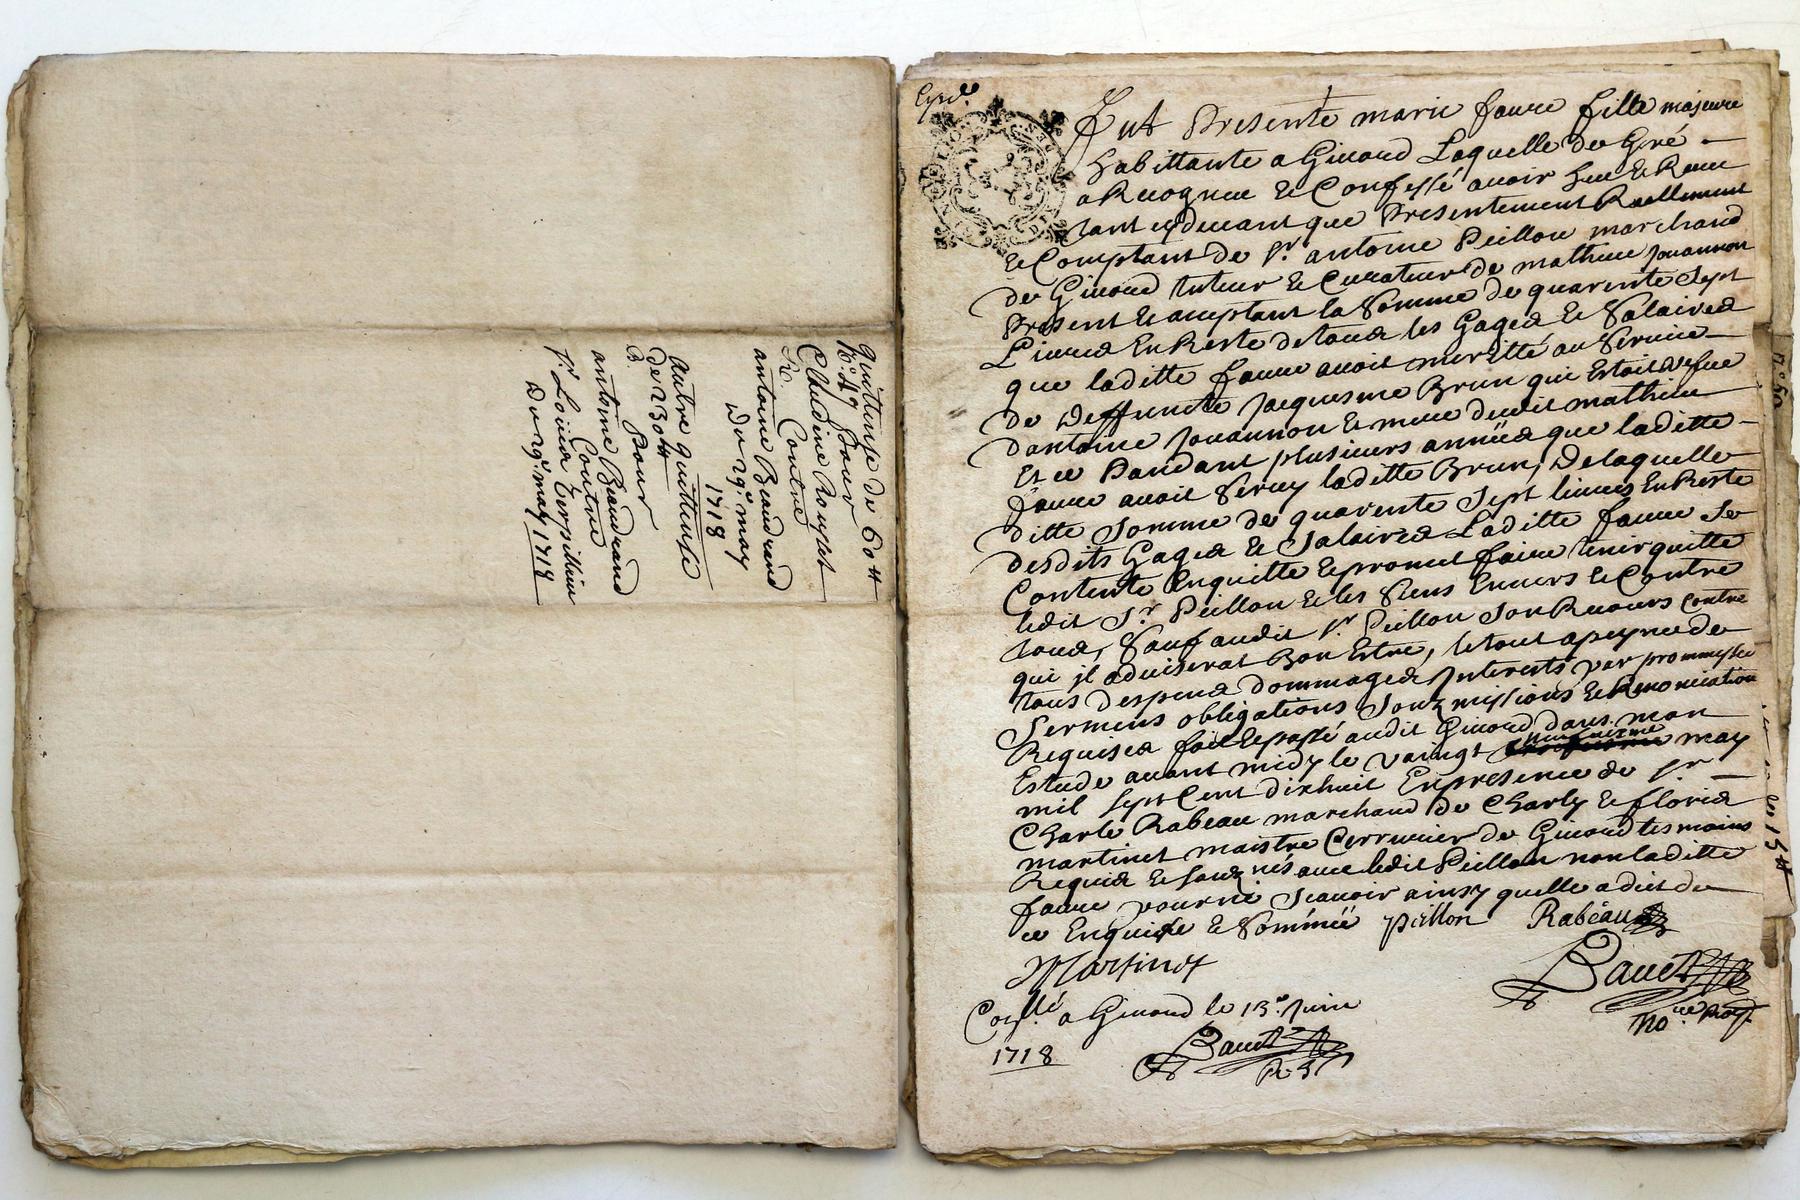 quittance de 60 ₶
N.º 49 pour
Claudine Rousset
Contre
antoine Beaudrand
Du 29.e may
1718
Autre quittance
De 230 ₶
pour
antoine Beaudrand
Contre
Sr. Loüis
Du 29.e may 1718
Expd.e
Fut Presente marie faure fille majeure
habittante a Giuord Laquelle de Gré
a Recognue & Confessé auoir heu & Receu
tant cydeuant que Presentement Reellement
& Comptant de Sr. antoine Peillon marchand
de Giuord tuteur & Curateur de mathieu Jouannon
Present & acceptant la Somme de quarente Sept
Liures En Reste de tous les Gages & Salaires
que laditte faure auoit meritté au Seruice
de Deffuncte Jacquesme Brun qui Estoit vefue
dantoine Jouannon & mere dudit mathieu
Et ce Pandant plusieurs années que laditte
faure auoit Seruy laditte Brun, De laquelle
ditte Somme de quarente Sept liures En Reste
desdits Gages & Salaires Laditte faure Se
Contente Enquitte & promet faire tenir quitte
ledit Sr. Peillon & les Siens Enuers & Contre
tous, Sauf audit Sr. Peillon Son Recours Contre
qui il aduiserat Bon Estre, le tout a peyne de
tous despens dommages Interests par prommesse
Sermens obligations Soubzmissions & Renonciation
Requises fait & passé audit Giuord dans mon
Estude auant midy le vaingt neufuieme may
mil Sept Cent dixhuit En presence de Sr.
Charle Rabeau marchand de Charly & floris
martinet maistre Cerrurier de Giuord tesmoins
Requis & Soubznés auec ledit Peillon non laditte
faure pour ne Scauoir ainsy quelle a dit de
ce Enquise & Sommée peillon Rabeau
Martinet
a Giuord le 13.e Juin
1718